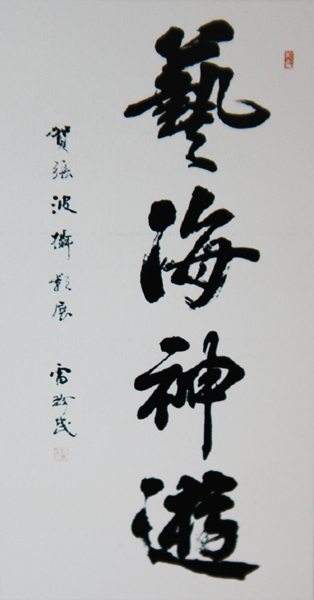 藝海神遊
賀張波攝影展
雷珍民